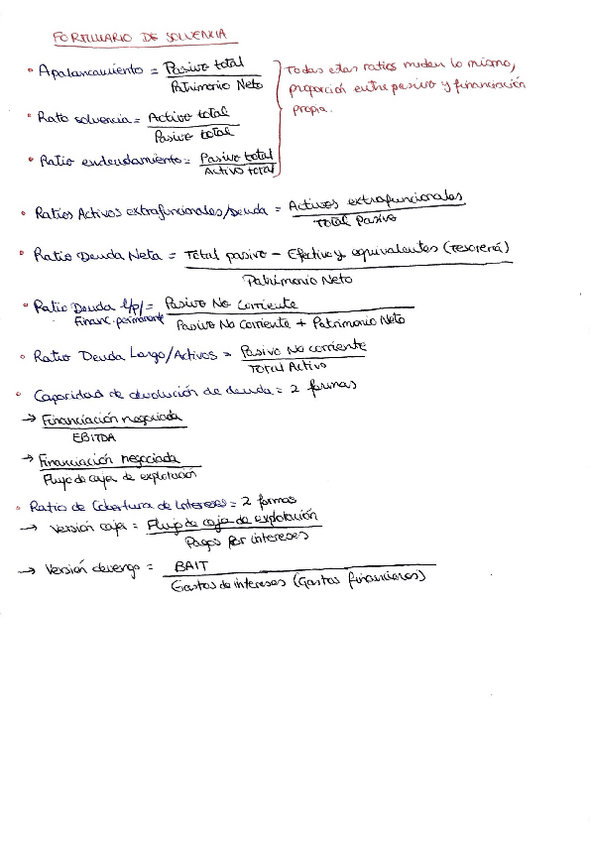 FORMULARIO DE SOLVENCIA
• Apalancamiento = Pasivo total
Patrimonio Neto
• Rato solvencia = Activo total
Pasivo total
• Ratio endeudamiento = Pasivo total
Activo total
Todas estas ratios miden lo mismo,
proporción entre pasivo y financiación
propia.
• Ratios Activos extrafuncionales/Deuda = Activos extrafuncionales
Total Pasivo
• Ratio Deuda Neta = Total pasivo - Efectivo y equivalentes (Tesorería)
Patrimonio Neto
• Ratio Deuda l/p/ = Pasivo No Corriente
Financ. permanente
Pasivo No Corriente + Patrimonio Neto
• Ratio Deuda Largo/Activos = Pasivo No corriente
Total Activo
• Capacidad de devolución de deuda = 2 formas
→ Financiación negociada
EBITDA
→ Financiación negociada
Flujo de caja de explotación
• Ratio de Cobertura de Intereses = 2 formas
→ Versión caja = Flujo de caja de explotación
Pagos por intereses
→ Versión devengo = BAIT
Gastos de intereses (Gastos financieros)